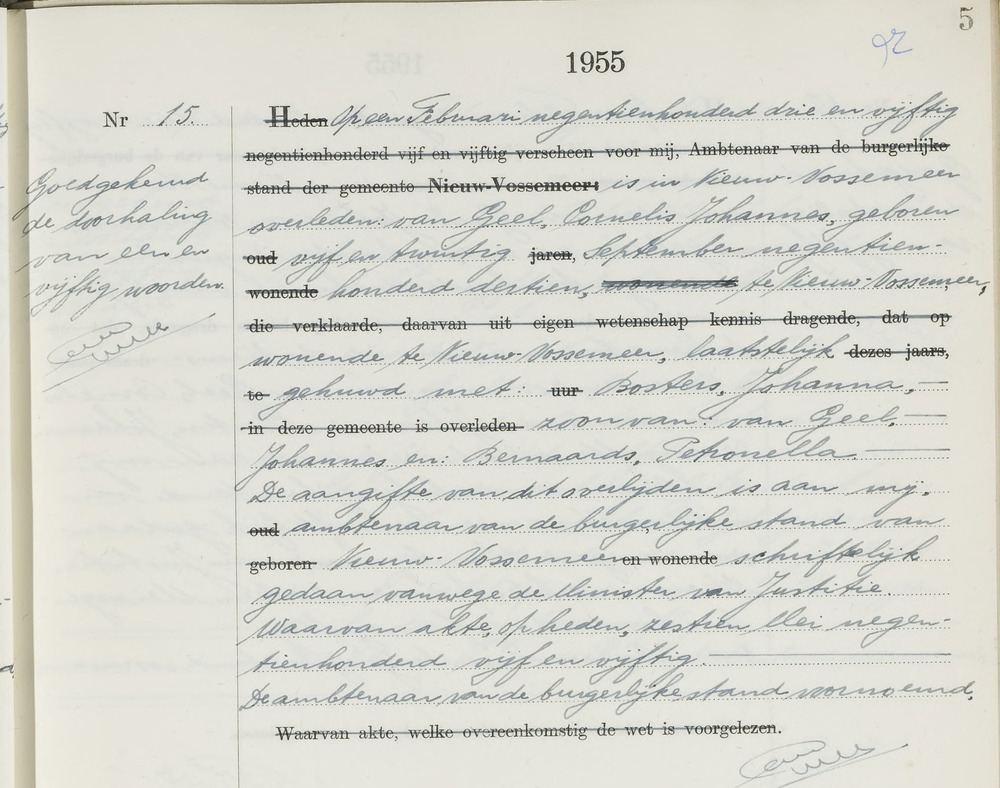 5
1955
Nr 15.
Heden Op een Februari negentienhonderd drie en vijftig
negentienhonderd vijf en vijftig verscheen voor mij, Ambtenaar van de burgerlijke
stand der gemeente Nieuw-Vossemeer: is in Nieuw-Vossemeer
overleden: van Geel, Cornelis Johannes, geboren
oud vijf en twintig jaren, September negentien-
wonende honderd dertien, wonende te Nieuw-Vossemeer,
die verklaarde, daarvan uit eigen wetenschap kennis dragende, dat op
wonende te Nieuw-Vossemeer, laatstelijk dezes jaars,
te gehuwd met: uur Bosters, Johanna,
in deze gemeente is overleden zoon van: van Geel,
Johannes en: Bernaards, Petronella.
De aangifte van dit overlijden is aan mij,
oud ambtenaar van de burgerlijke stand van
geboren Nieuw-Vossemeer en wonende schriftelijk
gedaan vanwege de Minister van Justitie.
Waarvan akte, op heden, zestien Mei negen-
tienhonderd vijf en vijftig.
De ambtenaar van de burgerlijke stand voornoemd,
Waarvan akte, welke overeenkomstig de wet is voorgelezen.
Goedgekeurd
de doorhaling
van een en
vijftig woorden.